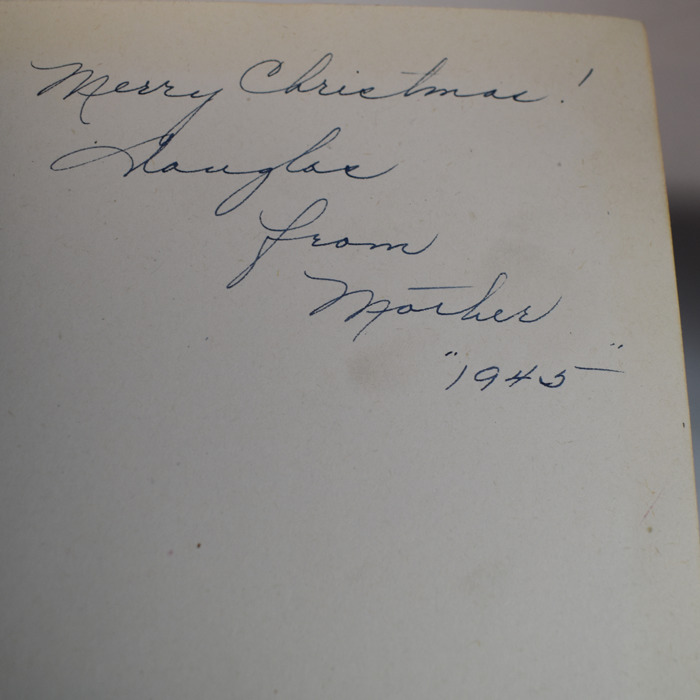 Merry Christmas!
Douglas
from
Mother
"1945"